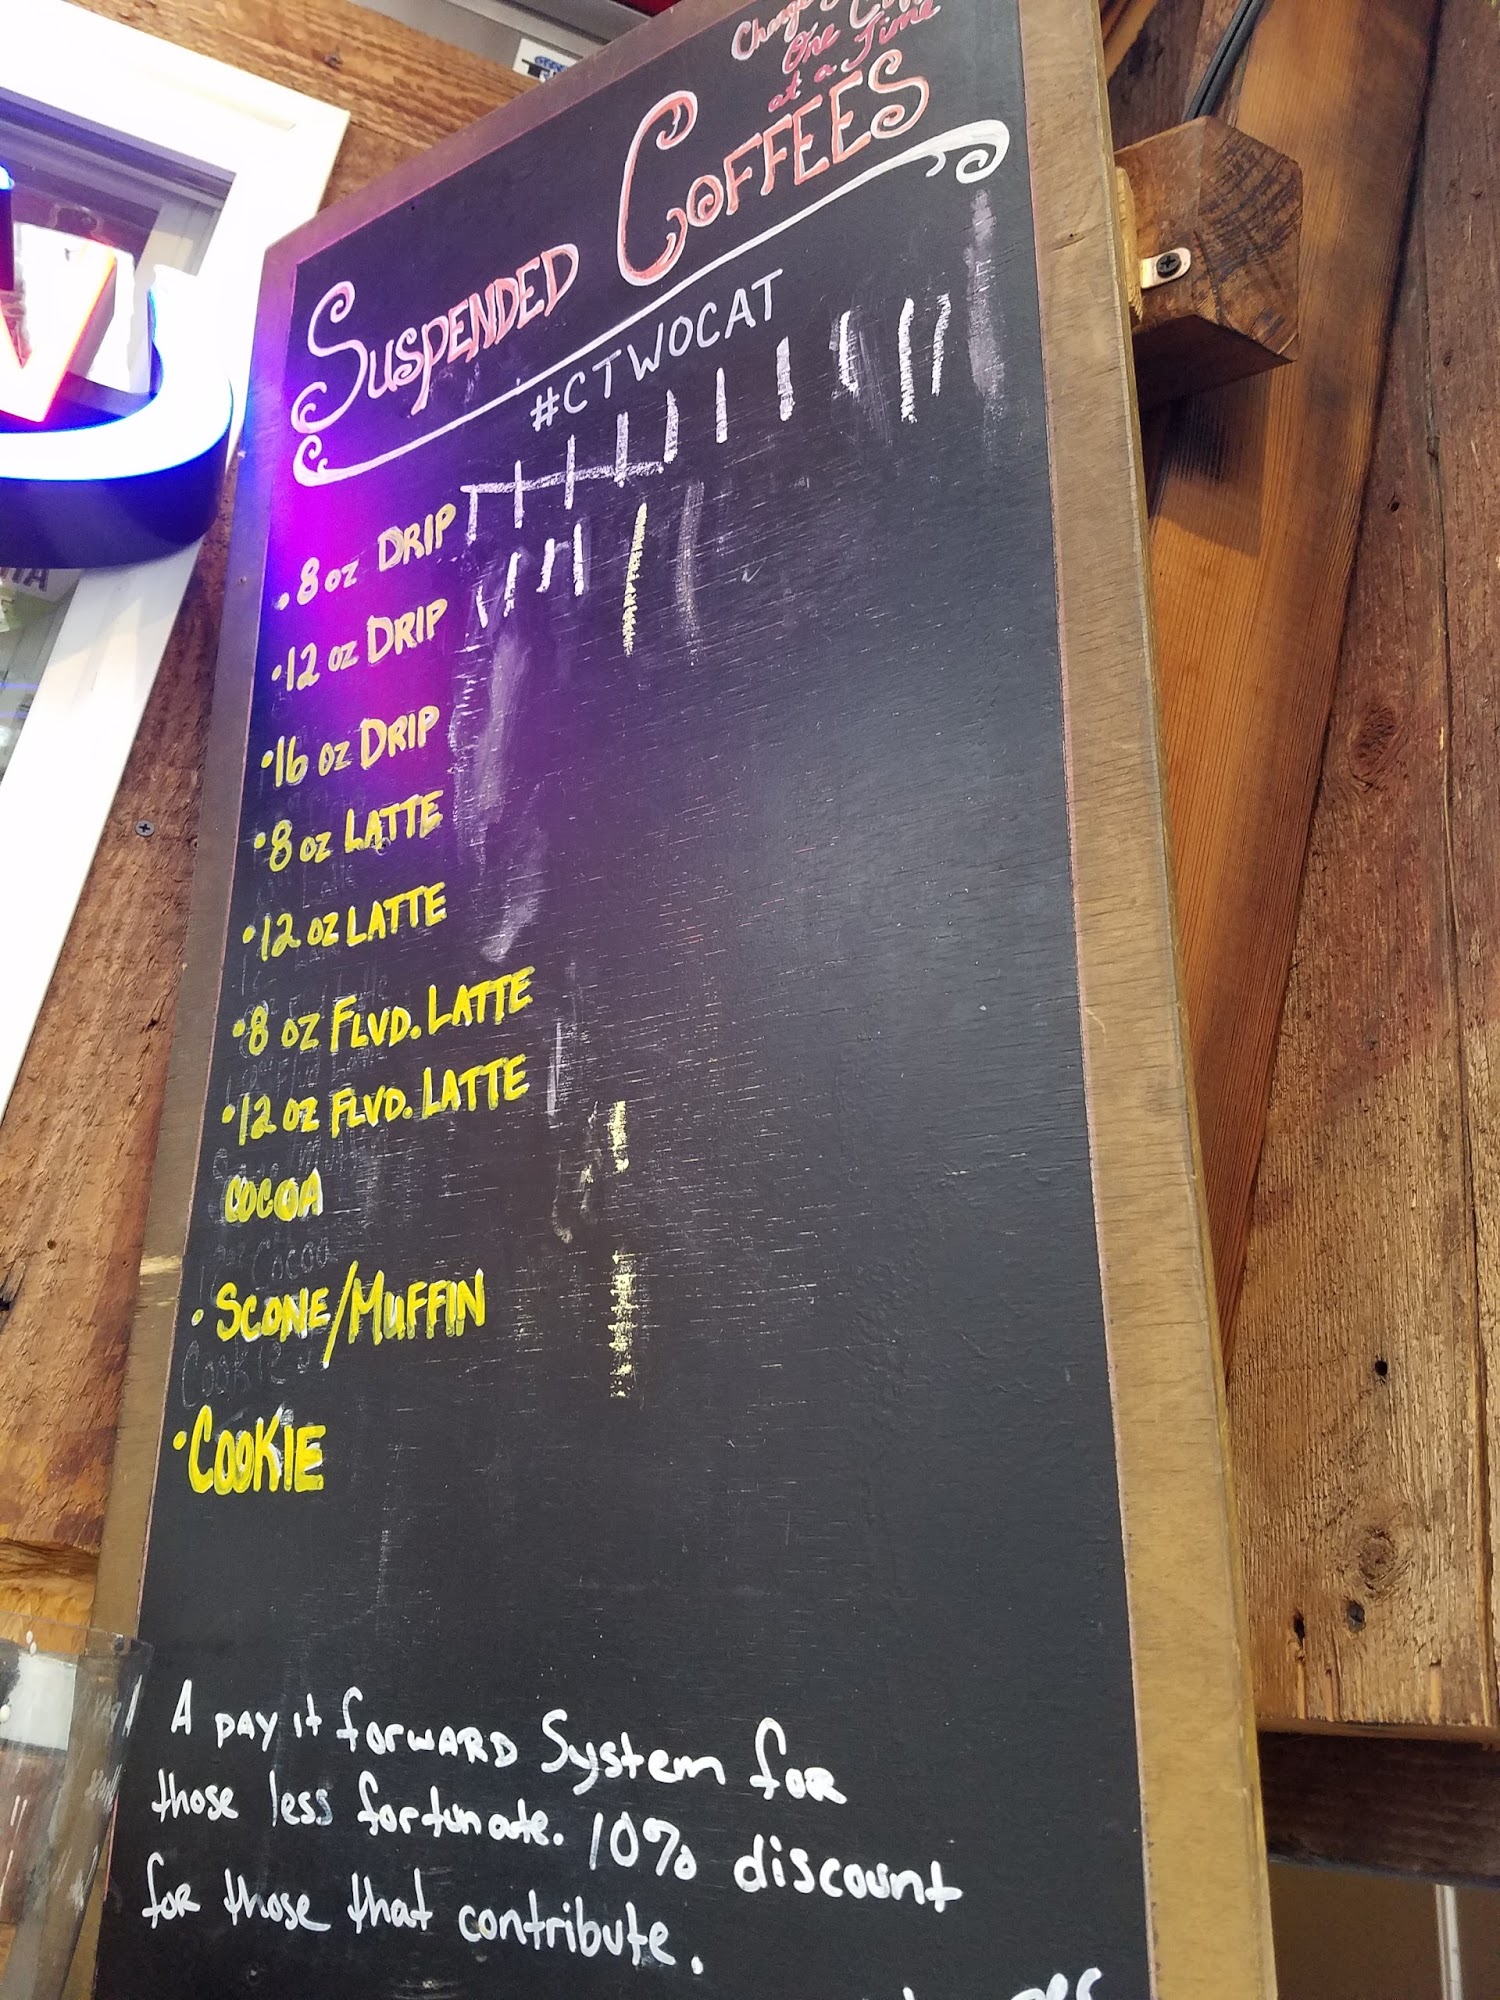 One
at a Time
SUSPENDED COFFEES
#CTWOCAT
. 8 oz DRIP
• 12 oz DRIP
• 16 oz DRIP
• 8 oz LATTE
• 12 oz LATTE
• 8 oz FLVD. LATTE
• 12 oz FLVD. LATTE
COCOA
• SCONE/MUFFIN
• COOKIE
A pay it forward System for
those less fortunate. 10% discount
for those that contribute.